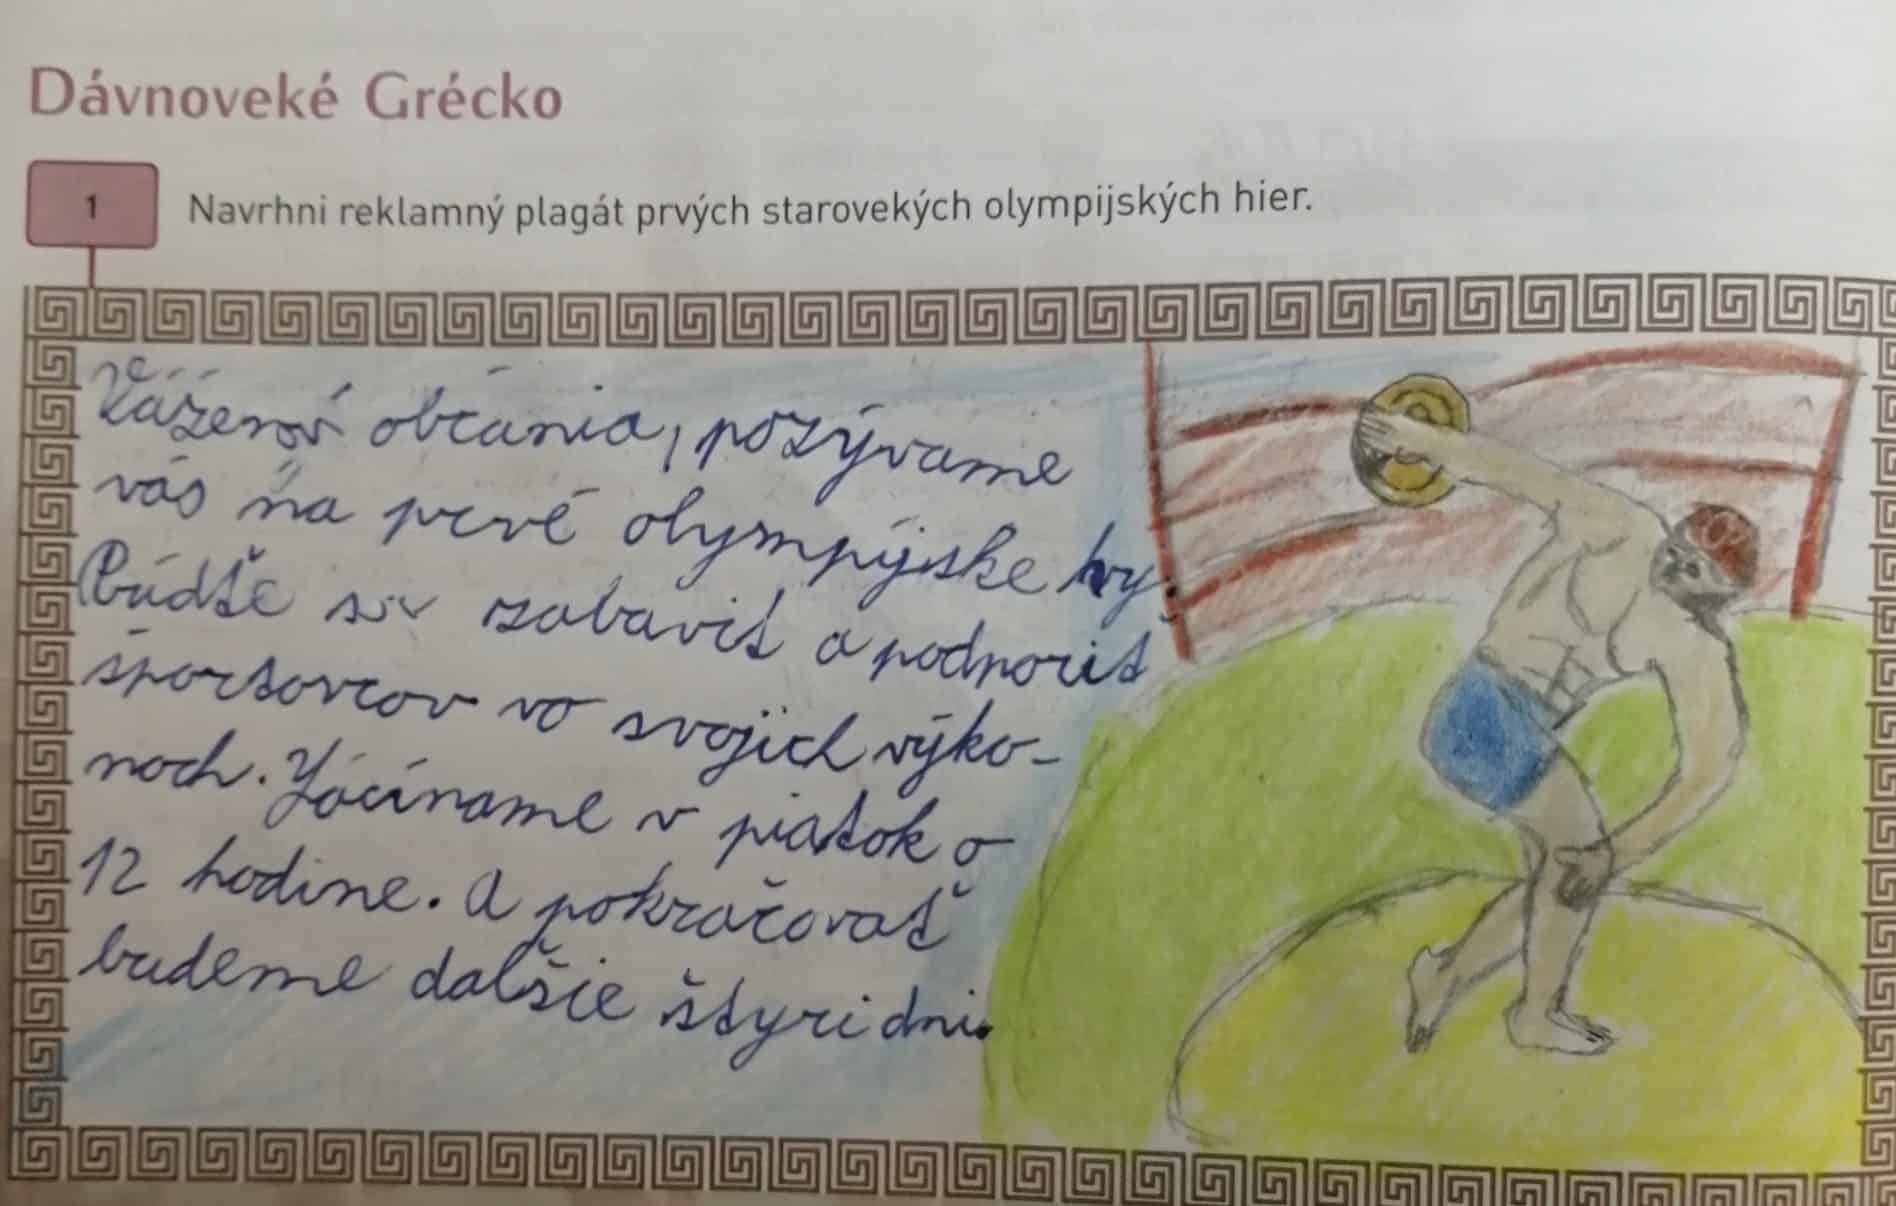 Dávnoveké Grécko
1
Navrhni reklamný plagát prvých starovekých olympijských hier.
Vážený občania, pozývame
vás na prvé olympíjske hry.
Púdťe sa zabaviť a podporiť
športovcov vo svojich výko-
noch. Začíname v piatok o
12 hodine. A pokračovať
budeme dalšie štyri dni.